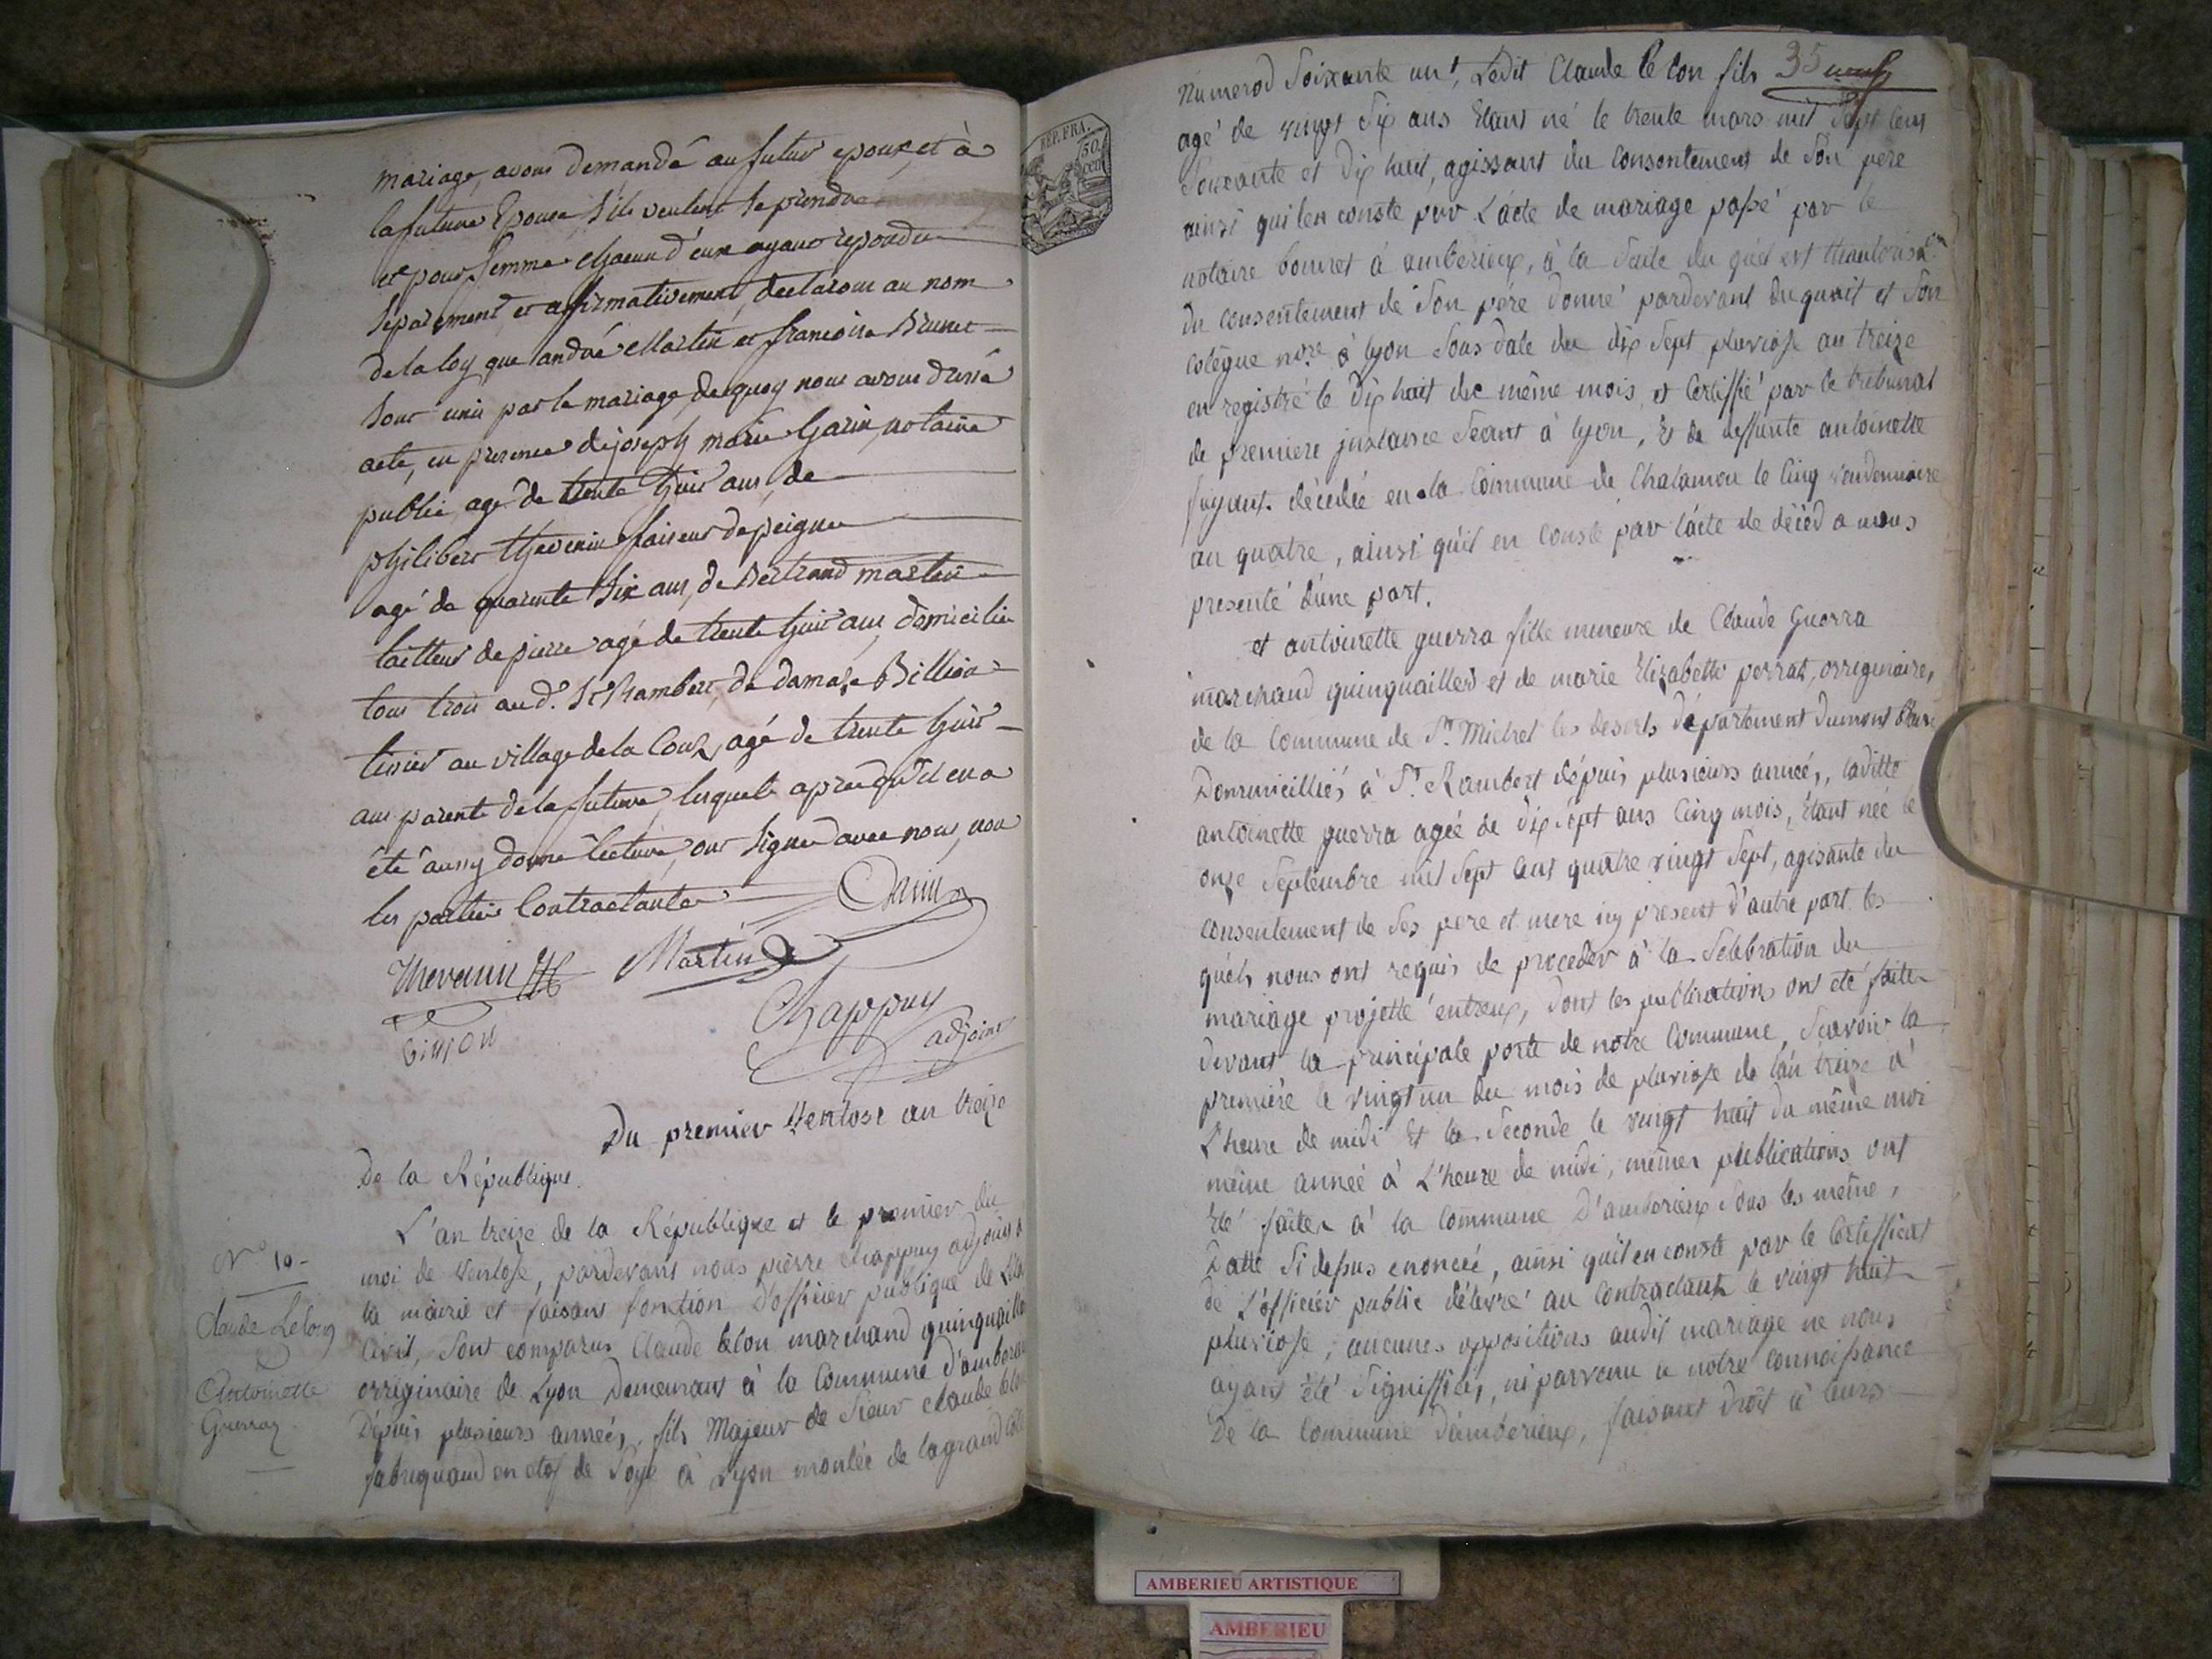 mariage, avons demandé au futur epoux, et à
la future Epouse s'ils veulent se prendre
et pour femme chacun d'eux ayant repondu
separement et affirmativement, declarons au nom
de la loy que andré Martin et francoise Brunet
sont unis par le mariage, de quoy nous avons dressé
acte, en presence de joseph marie Garin, notaire
public, agé de trente huit ans, de
philibert thevenin faiseur de peigne
agé de quarente six ans, de Bertrand martin
tailleur de pierre agé de trente huit ans, domiciliés
tous trois aud. St Rambert, de damase Billion
tissier au village de la Couz, agé de trente huit
ans parents de la future, lesquels apres qu'il en a
été aussy donné lecture, ont signé avec nous, non
les parties Contractantes
Garin
Thevenin Martin
Chappuy
adjoint
Billion
Du premier Ventose an treize
De la République.
N° 10-
Claude Lelong
Antoinette
Guerraz
L'an treize de la République et le premier du
moi de Ventose, pardevant nous pierre chappuy adjoint à
la mairie et faisant fonction d'officier publique de l'état
Civil, sont comparus Claude lelon marchand quinquaillier
orriginaire de Lyon Demeurant à la Commune d'amberieux
Dépuis plusieurs anneés, fils Majeur de sieur claude lelon
fabriquand en etof de Soye à Lyon montée de la grand Cote
35
Numerod Soixante un, Ledit Claude le lon fils
agé de vingt Six ans Etant né le trente mars mil Sept Cent
Soixante et dix huit, agissant du Consentement de son père
ainsi qu'il en conste par L'acte de mariage passé par le
notaire bonnet à amberieux, à la suite du quel est
du consentement de son père donné pardevant duquait et son
colègue nore à lyon sous date du dix sept pluviose an treize
enregistré le dix huit du même mois, et Certiffié par le tribunal
de premiere justance Séant à lyon, Et de deffunte antoinette
décedée en la Commune de Chalamon le Cinq vendemiaire
an quatre, ainsi qu'il en conste par l'acte de décéd a nous
presenté d'une part.
et antoinette guerra fille mineure de Claude Guerra
marchand quinquaillier et de marie Elizabette perrat, orriginaire,
de la Commune de St Michel les deserts département dumont blanc
Dommicilliés à St Rambert dépuis plusieurs anneés, laditte
antoinette guerra ageé de dix sept ans Cinq mois, Etant neé le
onze Septembre mil Sept Cent quatre vingt Sept, agisante du
consentement de ses pere et mere icy present d'autre part les
quels nous ont requis de proceder à la Selebration du
mariage projetté entreux, dont les publications ont été faites
devant la principale porte de notre Commune, Scavoir la
première le vingt un du mois de pluviose de l'an treize à
L'heure de midi Et la seconde le vingt huit du même moi
même anneé à L'heure de midi, mêmes publications ont
Eté faites à la Commune d'amberieux sous les même,
Datte Si dessus enonceé, ainsi qu'il en conste par le Certifficat
de L'officier public délivré au Contractants le vingt huit
pluviose; aucunes oppositions audit mariage ne nous
ayant été Signiffiées, ni parvenu a notre Connoissance
De la Commune d'amberieux, faisant droit à leurs
REP. FRA.
50
AMBERIEU ARTISTIQUE
AMBERIEU